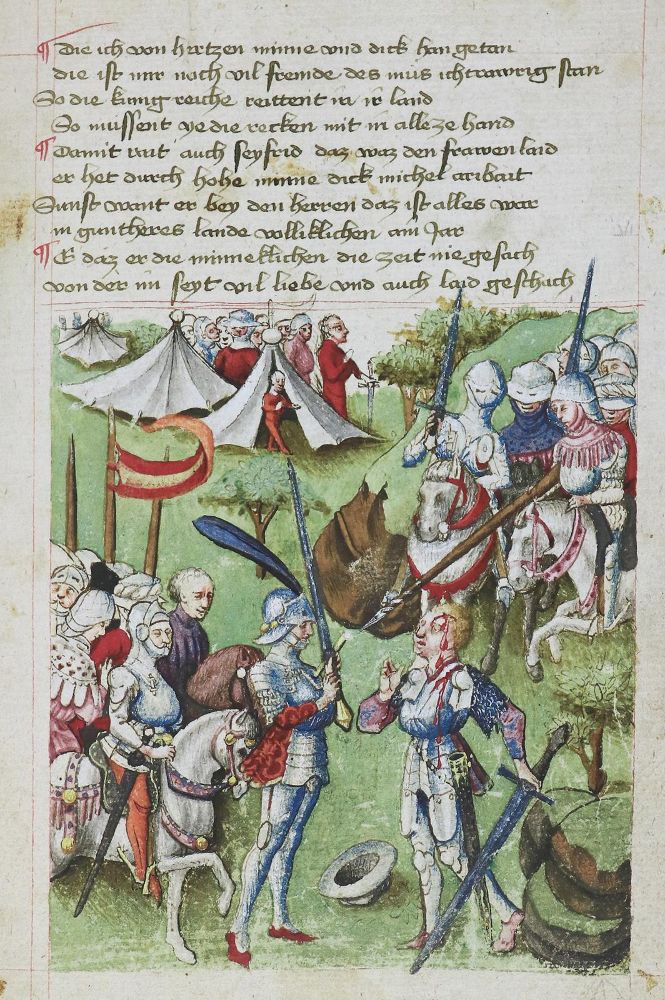 ¶ Die ich von hertzen minne vnd dick han getan
die ist mir noch vil fremde des mus ich trawrig stan
So die kunig reiche reittent in ir land
So mussent ye die recken mit in alle ze hand
¶ Damit rait auch seyfrid daz waz den frawen laid
er het durch hohe minne dick michel aribait
Sunst want er bey den herren daz ist alles war
in guntheres lande volliklichen ain Jar
¶ E daz er die minneklichen die zeit nie gesach
von der im seyt vil liebe vnd auch laid geschach